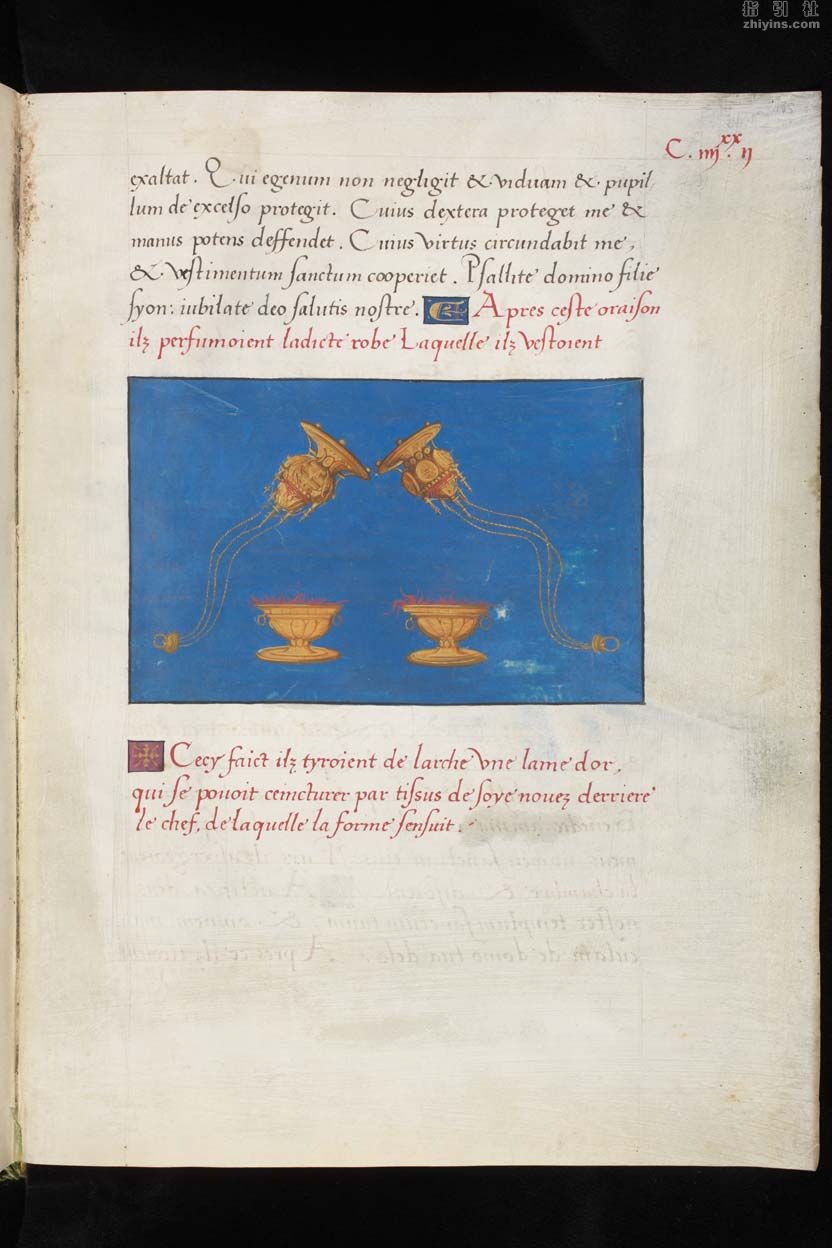 指引社
zhiyins.com
C. iiij.xx ij
exaltat. Qui egenum non negligit & viduam & pupil
lum de excelso protegit. Cuius dextera proteget me &
manus potens deffendet. Cuius virtus circundabit me,
& vestimentum sanctum cooperiet. Psallite domino filie
syon: iubilate deo salutis nostre. Apres ceste oraison
ilz perfumoient ladicte robe Laquelle ilz vestoient
Cecy faict ilz tyroient de larche vne lame dor,
qui se pouoit ceincturer par tissus de soye nouez derriere
le chef, de laquelle la forme sensuit.